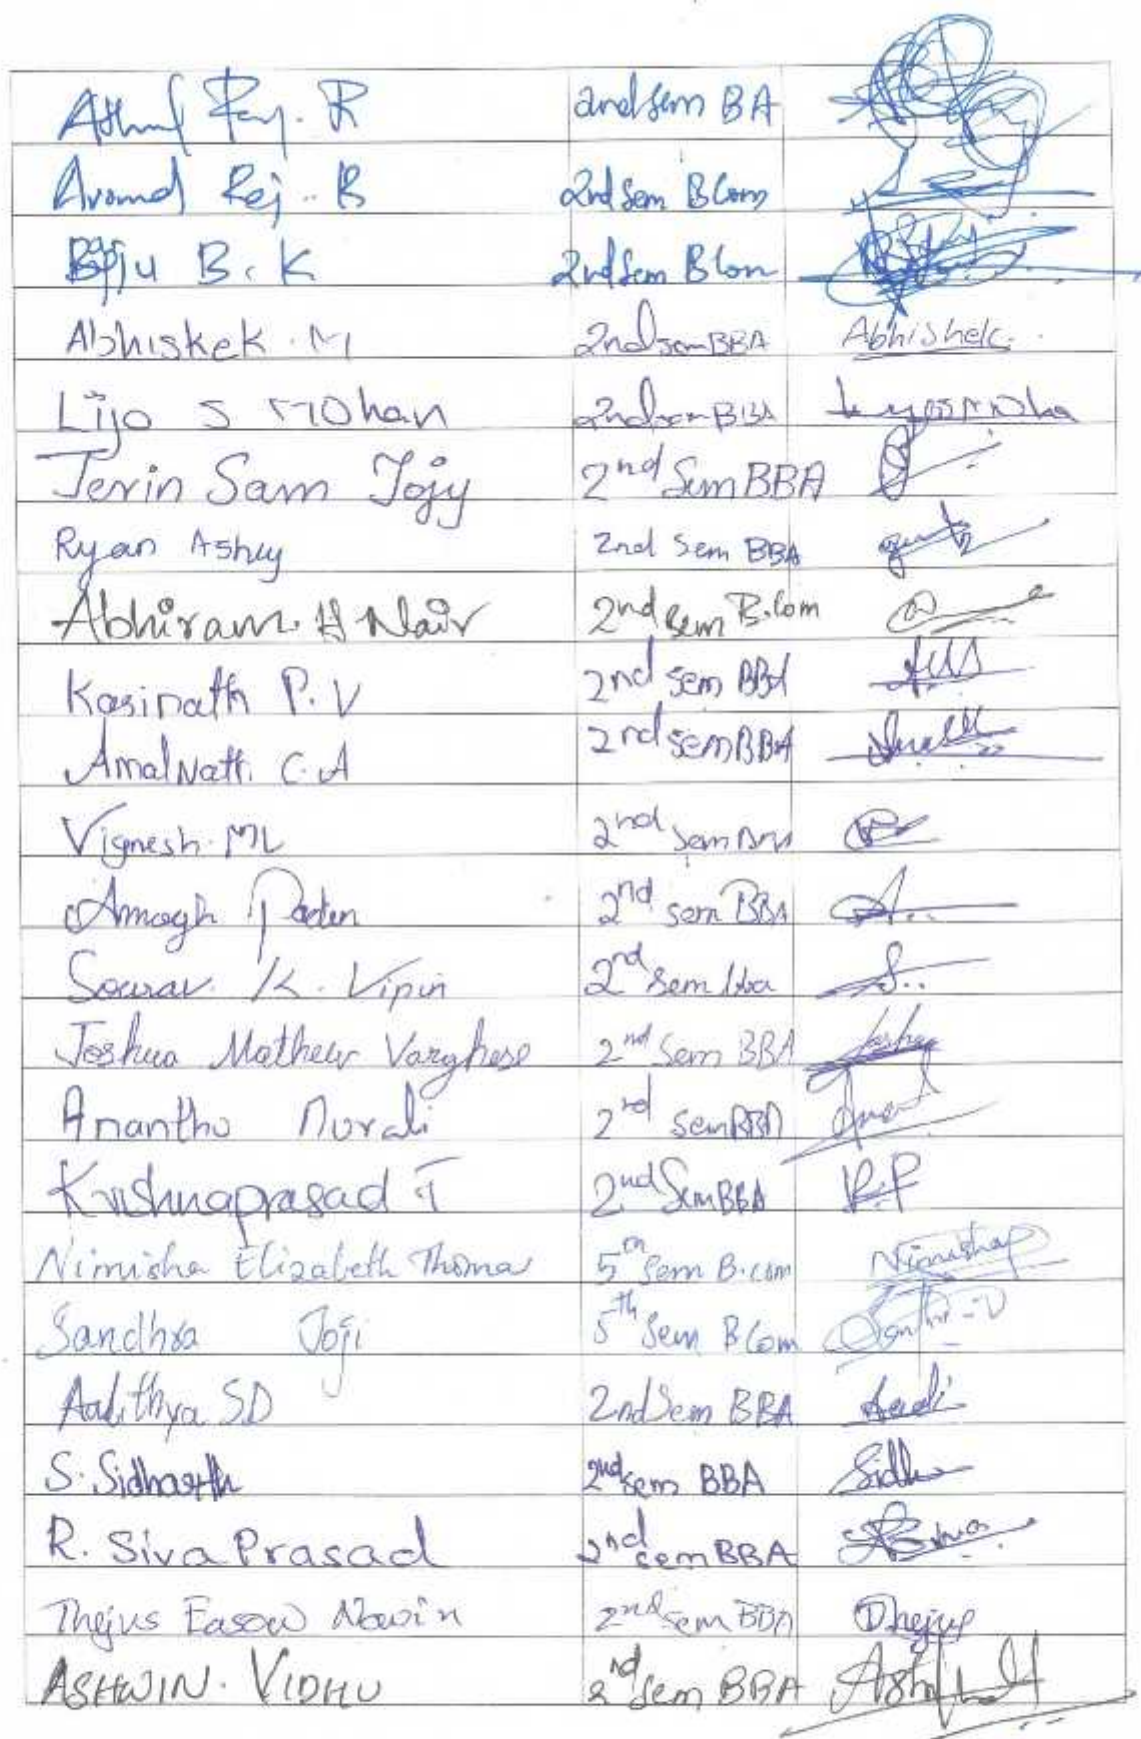 Athul Raj. R 2nd Sem BA
Aromal Raj. B 2nd Sem BCom
Baiju B. K 2nd Sem BCom
Abhiskek. M 2nd sem BBA Abhishek.
Lijo S Mohan 2nd sem BBA Lijo S Mohan
Jerin Sam Jojy 2nd Sem BBA
Ryan Ashy 2nd Sem BBA
Abhiram. H Nair 2nd Sem B.Com
Kasinath P. V 2nd sem BBA
Amal Nath. C. A 2nd sem BBA
Vignesh. ML 2nd Sem BBA
Amogh 2nd sem BBA A..
Sourav. K. Vipin 2nd Sem bba S..
Joshua Mathew Varghese 2nd Sem BBA Joshua
Ananthu Murali 2nd sem BBA
Krishnaprasad T 2nd Sem BBA K.P
Nimisha Elizabeth Thomas 5th Sem B.com Nimisha
Sandhra Joji 5th Sem BCom
Aadithya SD 2nd Sem BBA Aadi
S. Sidharth 2nd Sem BBA Sidhu
R. Siva Prasad 2nd sem BBA
Thejus Easow Navin 2nd sem BBA Thejus
ASHWIN. VIDHU 2nd Sem BBA